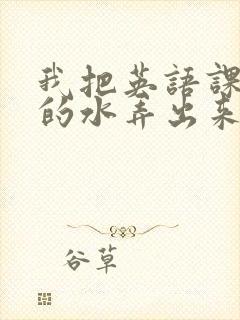 我把英語課
的水弄出來
谷草